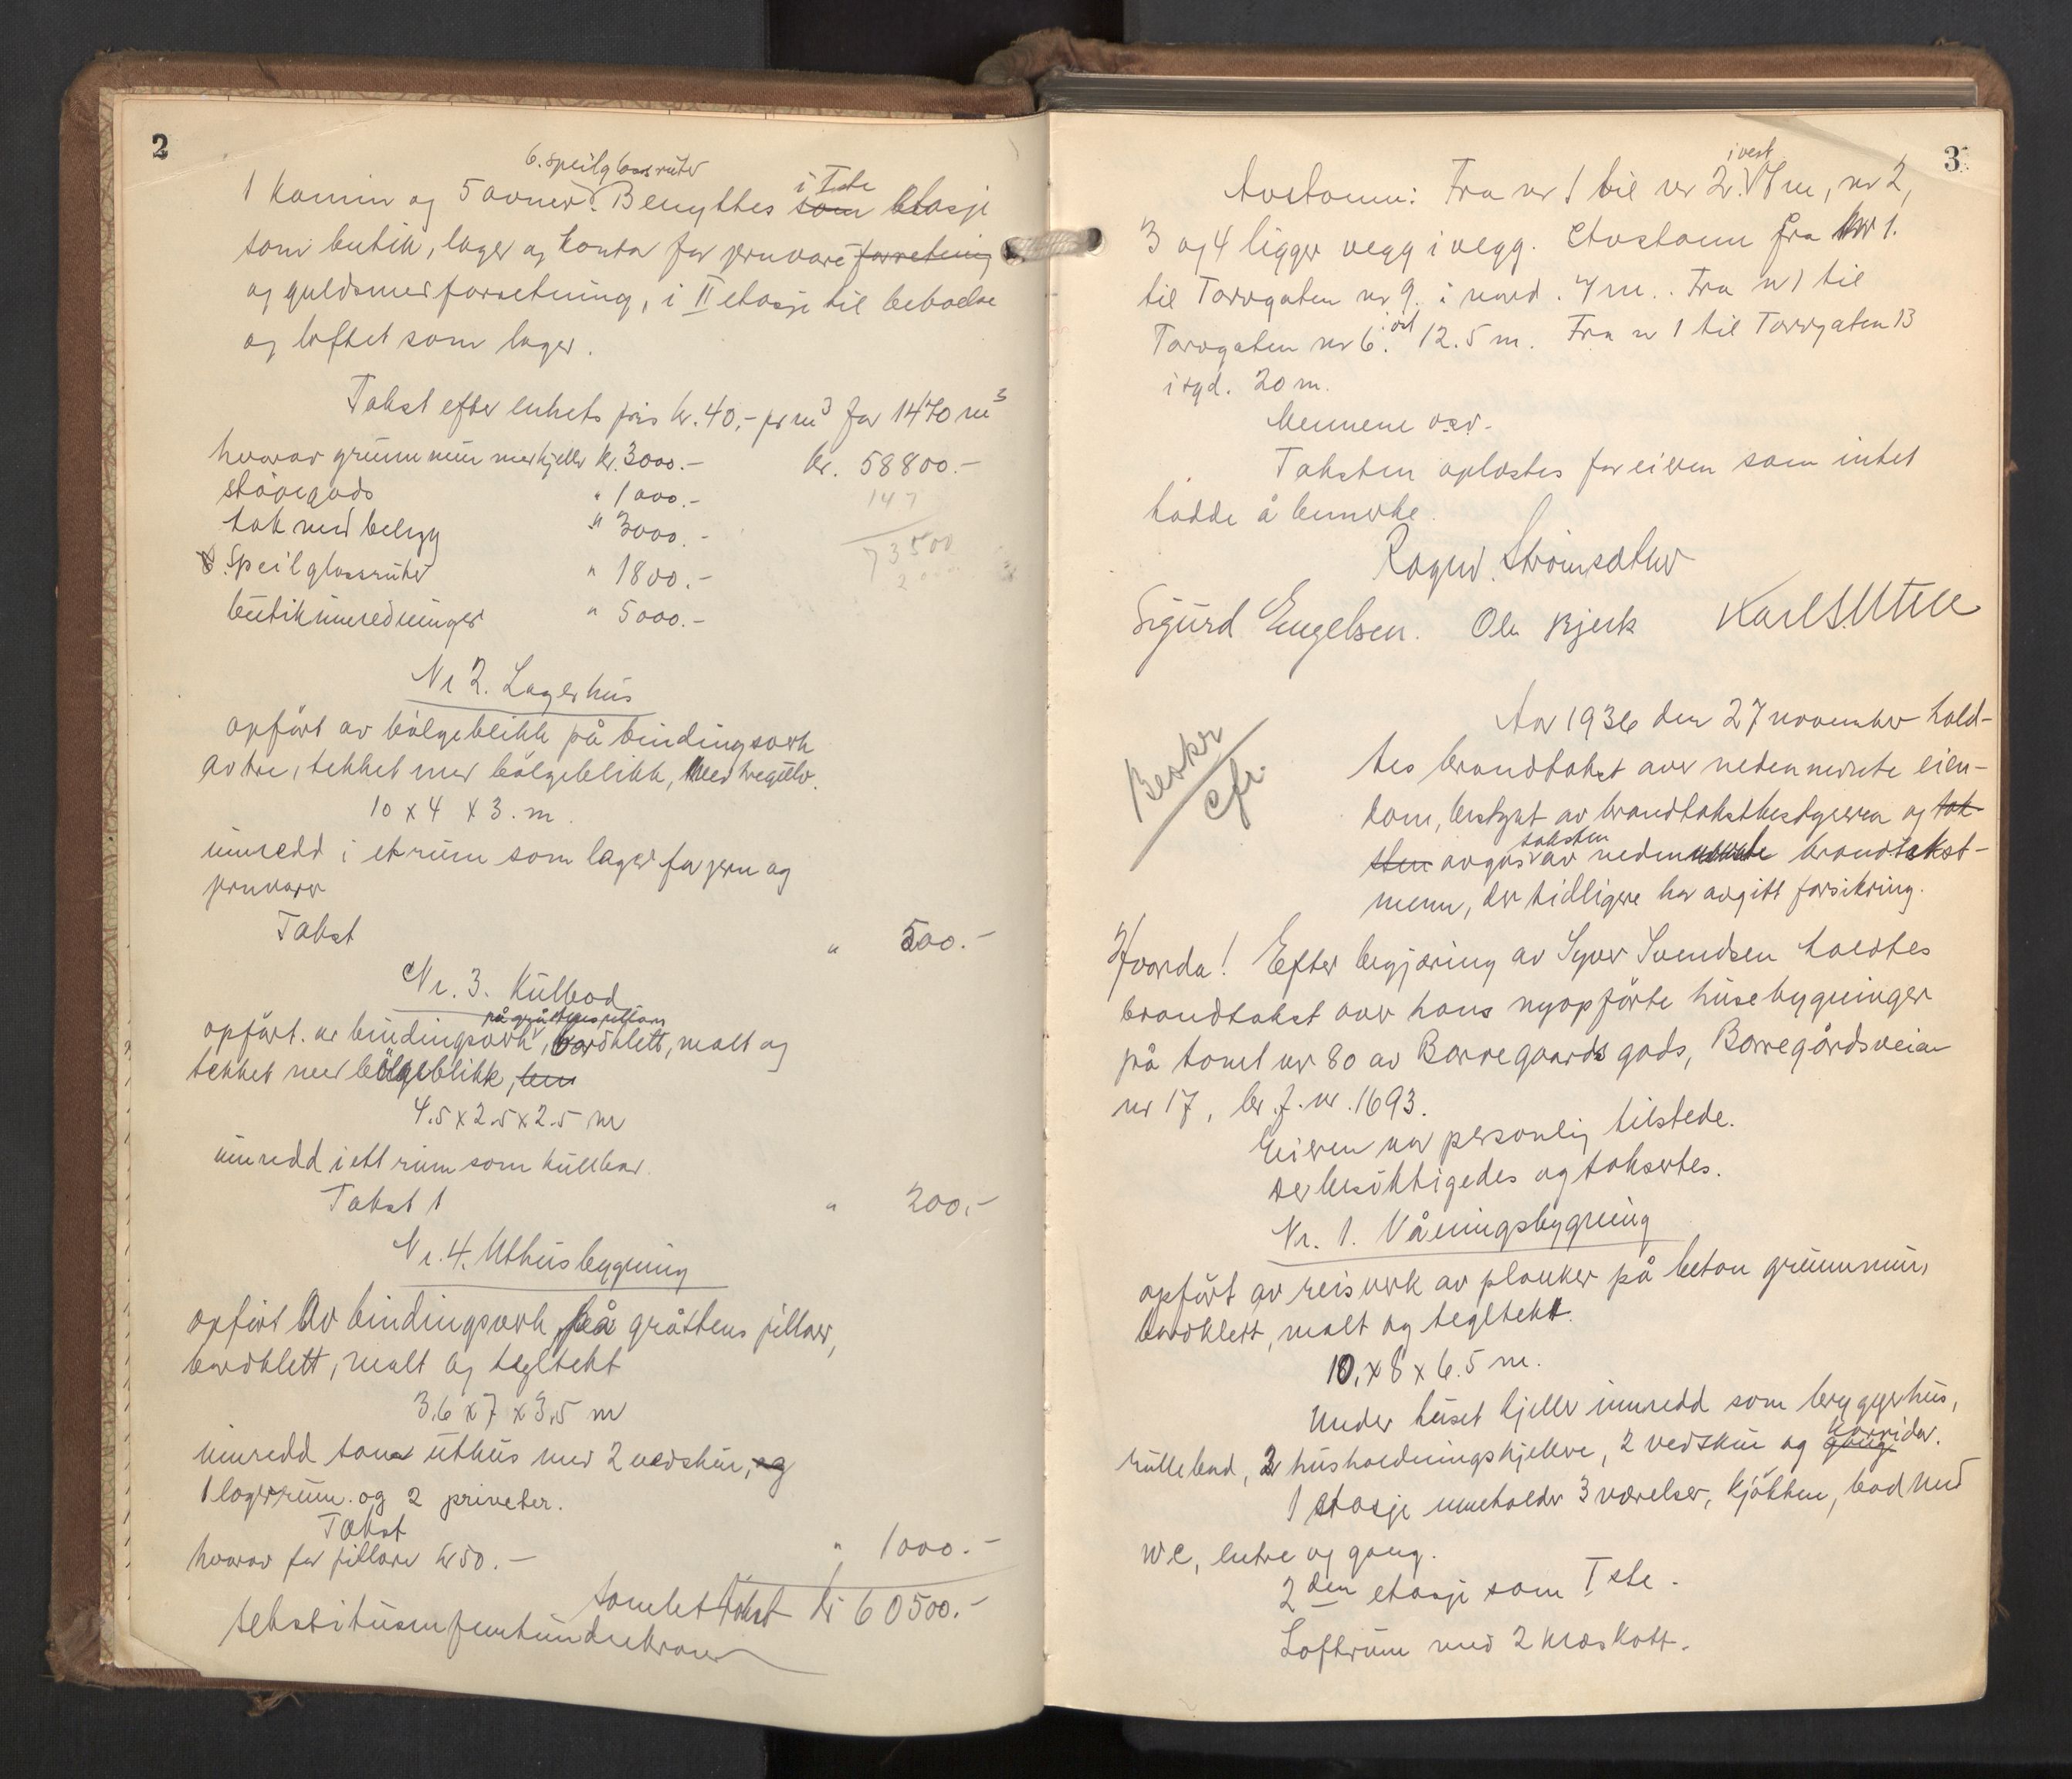 2
6. speilglassruter
1 kamin og 5 ovner. Benyttes som i Iste etasje
som butik, lager og kontor for jernvareforretning
og guldsmedforretning, i II etasje til beboelse
og loftet som lager.
Takst efter enhets pris kr. 40,- pr m³ for 1470 m³
hvorav grunnmur med kjeller kr. 3000.- kr. 58800.-
støpegods " 1000.- 147
tak med belegg " 3000.- 73500
Speilglassruter " 1800.-
butikinnredninger " 5000.-
Nr 2. Lagerhus
opført av bølgeblikk på bindingsverk
av tre, tekket med bølgeblikk, Med tregulv.
10 x 4 x 3. m.
innredd i et rum som lager for jern og
jernvarer
Takst " 500.-
Nr. 3. Kulbod
på gråstenspillarer
opført. av bindingsverk, bordklett, malt og
tekket med bølgeblikk,
4.5 x 2.5 x 2.5 m
innredd i ett rum som kullbod.
Takst 1 " 200.-
Nr. 4. Uthusbygning
opført Av bindingsverk på gråstens pillarer,
bordklett, malt og tegltekt
3.6 x 7 x 3.5 m
innredd som uthus med 2 vedskur, og
1 lagerrum. og 2 priveter.
Takst
hvorav for pillarer kr 50.- " 1000.-
Samlet takst kr 60500.-
sekstitusenfemhundrekroner
3
i vest
Avstann: Fra nr 1 til nr 2. 7 m, nr 2,
3 og 4 ligger vegg i vegg. Avstann fra nr 1.
til Torvgaten nr 9. i nord. 7 m.. Fra nr 1 til
Torvgaten nr 6. i øst 12.5 m. Fra nr 1 til Torvgaten 13
i syd. 20 m.
Mennene osv.
Taksten oplestes for eieren som intet
hadde å bemerke.
Ragnv. Strømsæther
Sigurd Engelsen. Ole Bjerk Karl S. Utne
Beskr
cfr.
Aar 1936 den 27 november hold-
tes brandtakst over nedennevnte eien-
dom, bestyrt av brandtakstbestyreren og tak-
sten avgis taksten av nedennevnte brandtakst-
menn, der tidligere har avgitt forsikring.
Hvorda! Efter begjæring av Syver Svendsen holdtes
brandtakst over hans nyopførte husebygninger
på tomt nr 80 av Borregaards gods, Borregårdsveien
nr 17, br. f. nr. 1693.
Eieren var personlig tilstede.
Der besiktigedes og taksertes.
Nr. 1. Våningsbygning
opført av reisverk av planker på beton grunnmur,
bordklett, malt og tegltekt.
10. x 8 x 6.5 m.
Under huset kjeller innredd som bryggerhus,
rullebod, 2 husholdningskjellere, 2 vedskur og gang korridor.
1 etasje inneholder 3 værelser, kjøkken, bad med
WC, entre og gang.
2den etasje som I ste.
Loftrum med 2 kleskott.